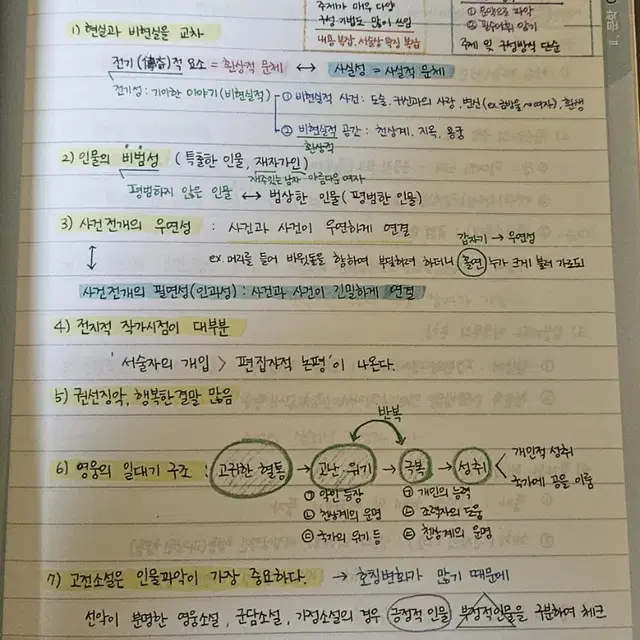 주제가 매우 다양
구성 기법도 많이 쓰임
내용 복잡, 서술상 특징 복잡
② 필수어휘 암기
주제 및 구성방식 단순
II. 문학
1) 현실과 비현실을 교차
전기(傳奇)적 요소 = 환상적 문체 ↔ 사실성 = 사실적 문체
전기성 : 기이한 이야기 (비현실적)
① 비현실적 사건 : 도술, 귀신과의 사랑, 변신 (ex. 금방울 → 여자), 환생
② 비현실적 공간 : 천상계, 지옥, 용궁
환상적
2) 인물의 비범성 (특출한 인물, 재자가인)
재주있는 남자 아름다운 여자
평범하지 않은 인물 ↔ 범상한 인물 (평범한 인물)
3) 사건전개의 우연성 : 사건과 사건이 우연하게 연결
갑자기 → 우연성
ex. 머리를 들어 바윗돌을 향하여 부딪히려 하더니 홀연 누가 크게 불러 가로되
사건전개의 필연성(인과성) : 사건과 사건이 긴밀하게 연결
4) 전지적 작가시점이 대부분
'서술자의 개입 > 편집자적 논평'이 나온다.
5) 권선징악, 행복한 결말 많음
반복
6) 영웅의 일대기 구조 : 고귀한 혈통 → 고난·위기 → 극복 → 성취 < 개인적 성취
국가에 공을 이룸
㉠ 악인 등장 ㉠ 개인의 능력
㉡ 천상계의 운명 ㉡ 조력자의 도움
㉢ 국가의 위기 등 ㉢ 천상계의 운명
7) 고전소설은 인물파악이 가장 중요하다. → 호칭변화가 많기 때문에
선악이 분명한 영웅소설, 군담소설, 가정소설의 경우 긍정적 인물 부정적인물을 구분하여 체크